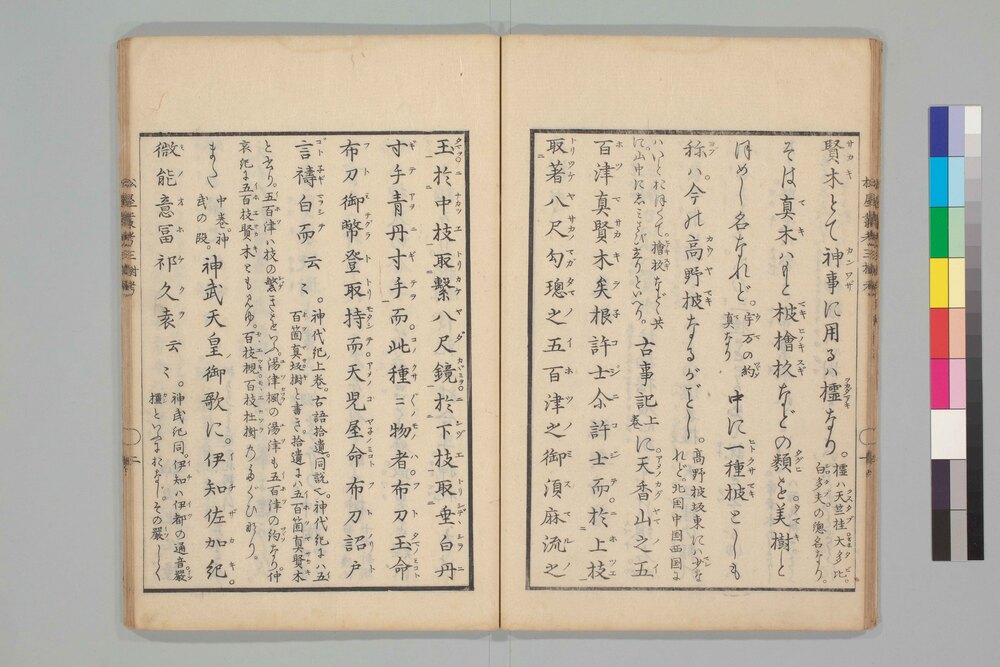 賢木とて神事に用るハ橿なり。橿ハ天竺桂大多比。
白多夫の總名なり。
そは真木ハもと柀檜杉などの類を美樹と
ほめし名なれど。宇万の約
真なり 中に一種柀としも
称ハ今の高野柀なるがごとし。高野柀坂東にハ少な
れど。北国中国西国に
ハいと多く。檜杉など共
に。山中に志みさび立りといへり。 古事記上巻に天香山之五
百津真賢木矣根許士尒許士而。於上枝
取著八尺勾璁之五百津之御須麻流之
玉於中枝取繋八尺鏡於下枝取垂白丹
寸手青丹寸手而。此種〻物者布刀玉命
布刀御幣登取持而天児屋命布刀詔戸
言禱白而云〻。神代紀上巻。古語拾遺。同説也。神代紀にハ五
百箇真坂樹と書き。拾遺にハ五百箇真賢木
と有り。五百津ハ枝の繁きをいふ。湯津楓の湯津も五百津の約なり。仲
哀紀に五百枝賢木とも見ゆ。百枝槻。百枝杜樹のるゐひなり。
また中巻。神
武の段。神武天皇御歌に。伊知佐加紀。
微能意冨祁久袁云〻。神武紀同。伊知ハ伊都の通音嚴
橿といふにおなじ。その嚴し